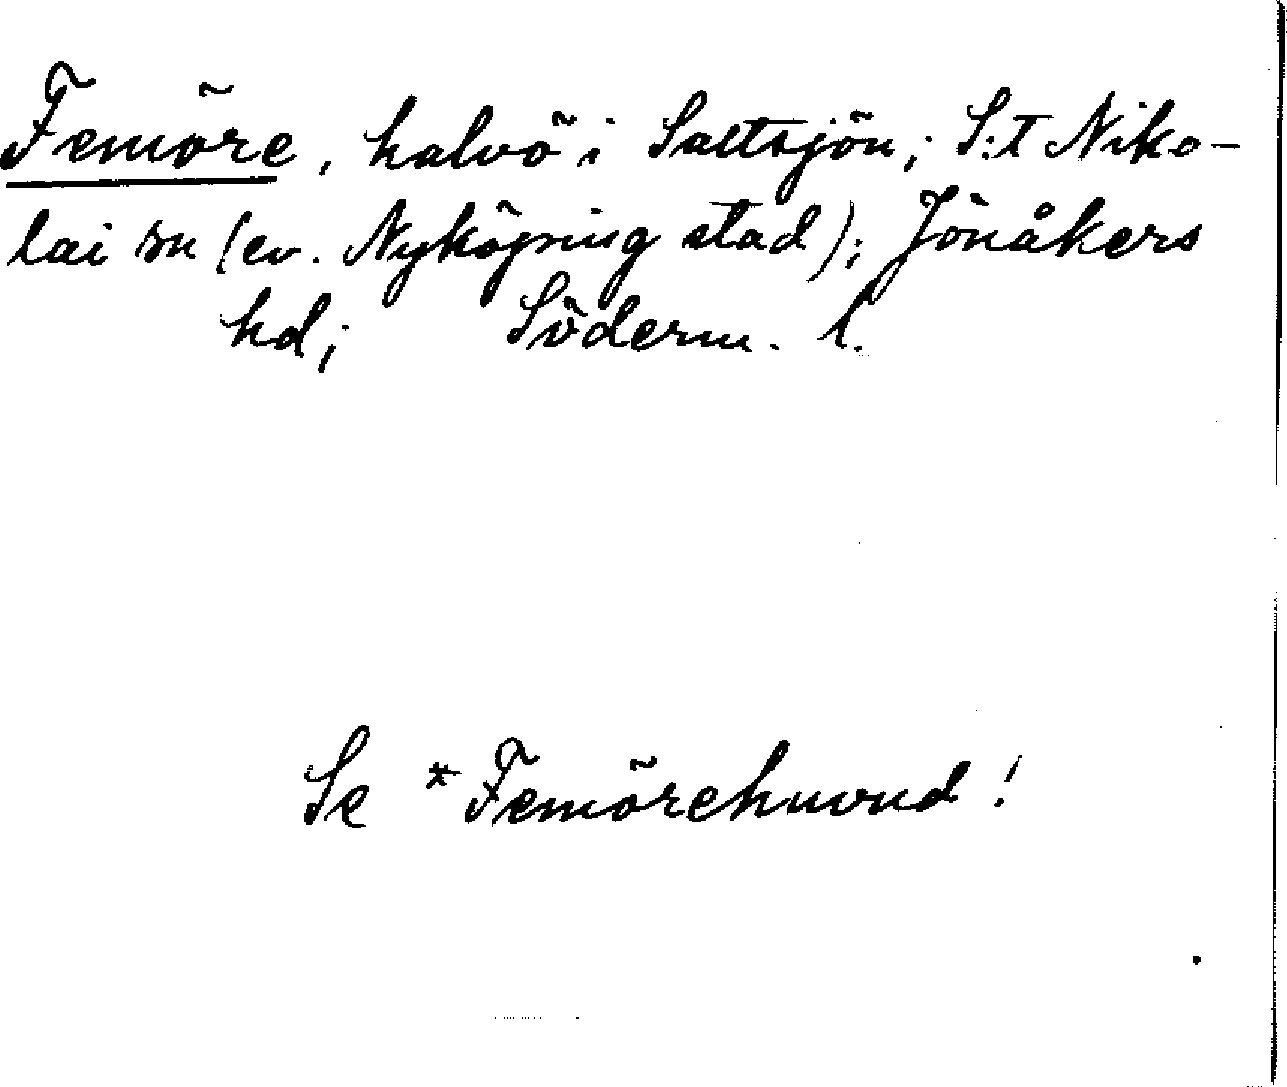 Femöre, halvö i Saltsjön; S:t Niko-
lai sn (ev. Nyköping stad); Jönåkers
hd; Söderm. l.
Se *Femörehuvud!